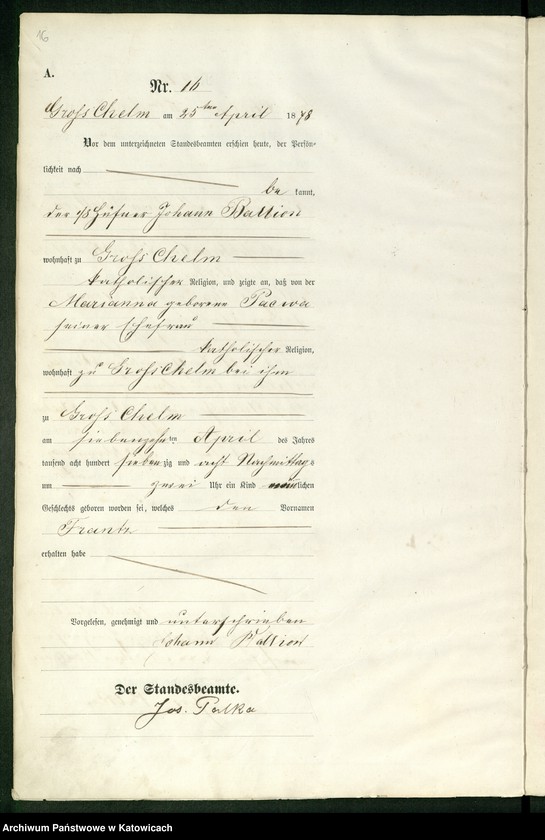 16
A.
Nr. 16
Gross Chelm am 25ten April 1878
Vor dem unterzeichneten Standesbeamten erschien heute, der Persön-
lichkeit nach
be kannt,
der Hüfner Johann Baltion
wohnhaft zu Gross Chelm
katholischer Religion, und zeigte an, daß von der
Marianna geborene Pacwa
seiner Ehefrau
katholischer Religion,
wohnhaft zu Gross Chelm bei ihm
zu Gross Chelm
am siebenzehnten April des Jahres
tausend acht hundert siebenzig und acht Nachmittags
um zwei Uhr ein Kind männlichen
Geschlechts geboren worden sei, welches den Vornamen
Frantz
erhalten habe
Vorgelesen, genehmigt und unterschrieben
Johann Baltion
Der Standesbeamte.
Jos. Palka
Archiwum Państwowe w Katowicach